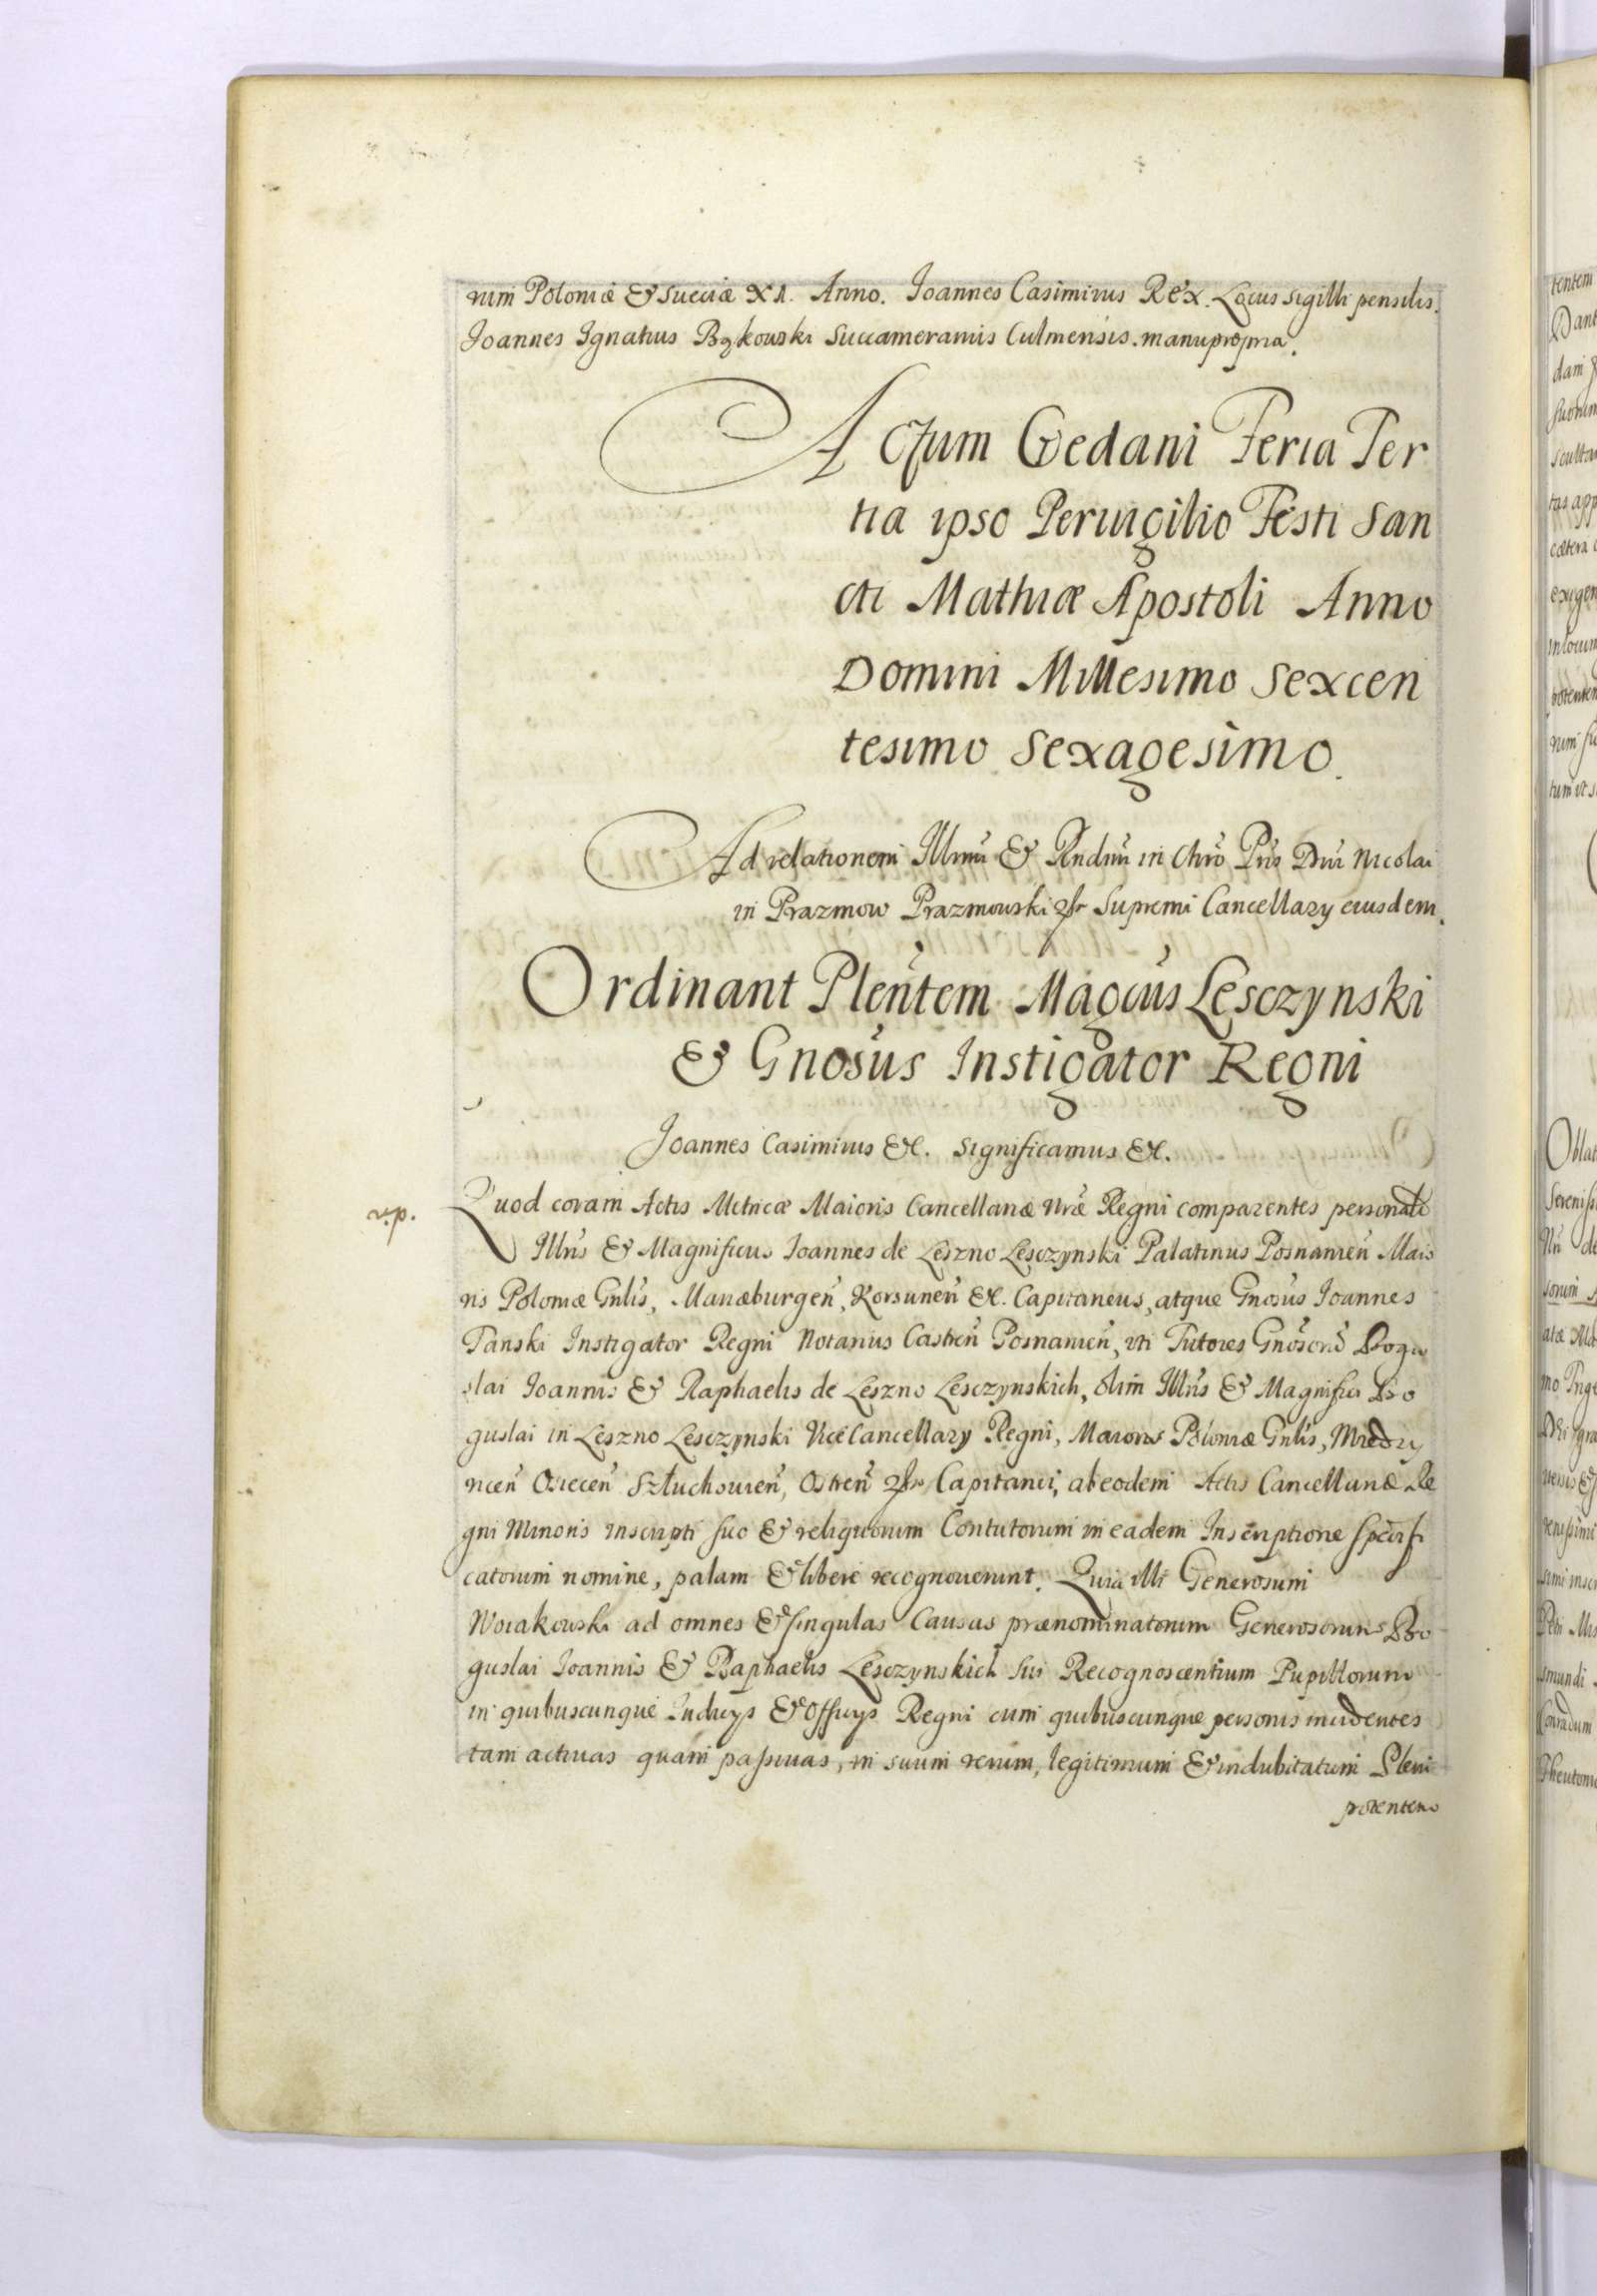 rum Poloniæ & Sueciæ XI. Anno. Ioannes Casimirus Rex. Locus sigilli pensilis.
Joannes Ignatius Bąkowski Succamerarius Culmensis. manuprópria.
Actum Gedani Feria Ter
tia ipso Peruigilio Festi San
cti Mathiæ Apostoli Anno
Domini Millesimo Sexcen
tesimo Sexagesimo.
Ad relationem Illmi & Rndmi in Chro Pris Dni Nicolai
in Prazmow Prazmowski Supremi Cancellary eiusdem.
Ordinant Plentem Magcus Lesczynski
& Gnosus Instigator Regni
Joannes Casimirus &c. Significamus &c.
r.p.
Quod coram Actis Metricæ Maioris Cancellariæ Nræ Regni comparentes personale
Illris & Magnificus Ioannes de Leszno Lesczynski Palatinus Posnanien Maio
ris Poloniæ Gnlis, Mariæburgen, Korsunen &c. Capitaneus, atque Gnosus Ioannes
Tanski Instigator Regni Notarius Castren Posnanien, uti Tutores Gnosorũ Bogu
slai Ioannis & Raphaelis de Leszno Lesczynskich, olim Illris & Magnifici Bo
guslai in Leszno Lesczynski ViceCancellary Regni, Maioris Poloniæ Gnlis, Miedzy
ricen Osiecen Szłuchowien, Ostren Capitanei, ab eodem Actis Cancellariæ Re
gni Minoris inscripti suo & reliquorum Contutorum in eadem Inscriptione specifi
catorum nomine, palam & libere recognouerunt. Quia illi Generosum
Woiakowski ad omnes & singulas Causas prænominatorum Generosorum Bo
guslai Ioannis & Raphaelis Lesczynskich sui Recognoscentium Pupillorum
in quibuscunque Iudicys & Officys Regni cum quibuscunque personis incidentes
tam actiuas quam passiuas, in suum verum, legitimum & indubitatum Pleni
potentem